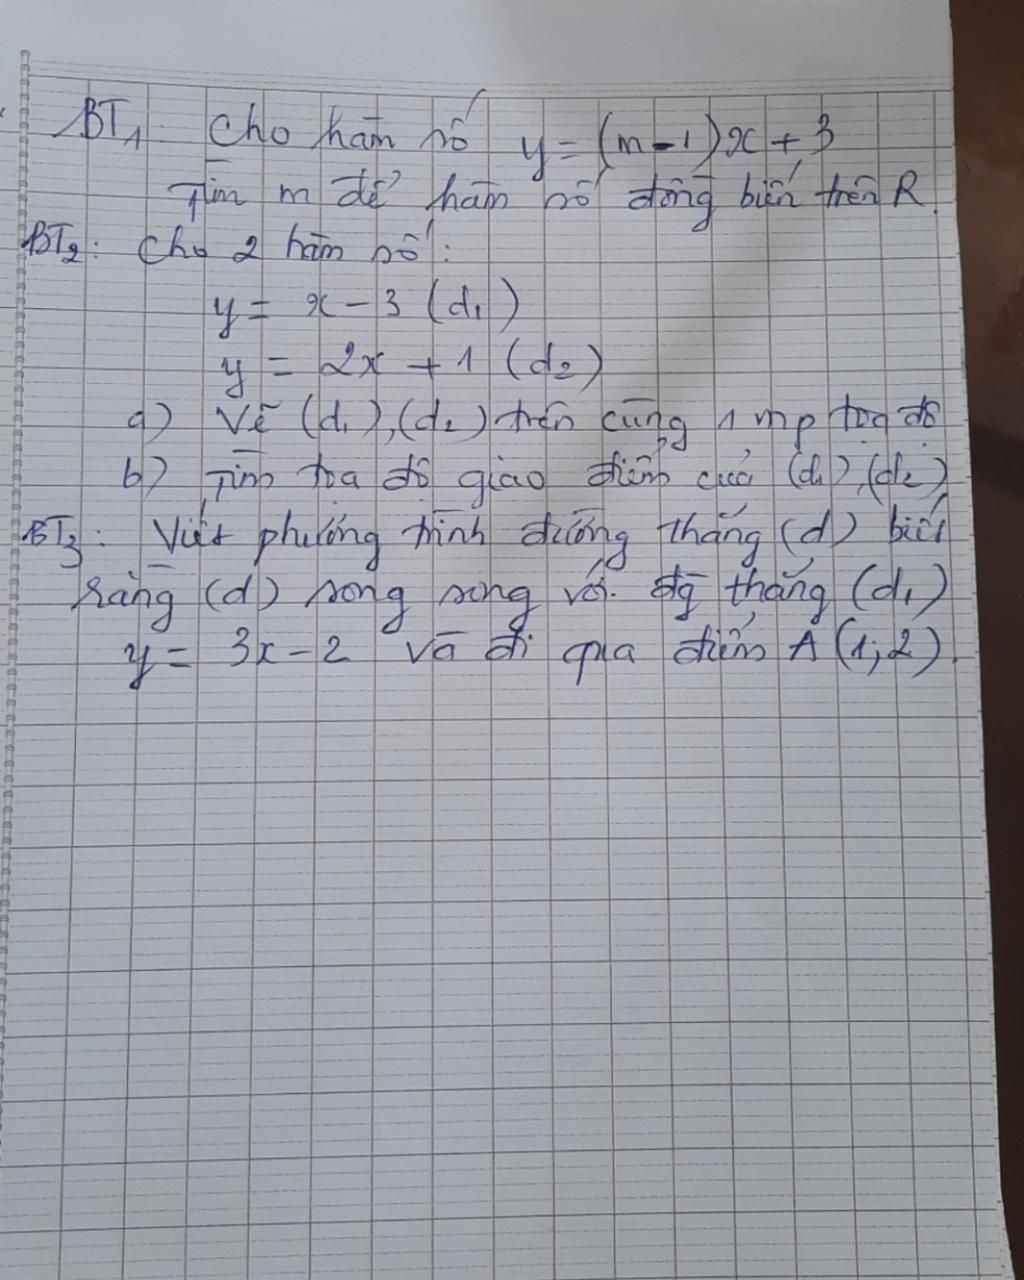 BT1. Cho hàm số y = (m-1)x + 3
Tìm m để hàm số đồng biến trên R.
BT2: Cho 2 hàm số:
y = x - 3 (d1)
y = 2x + 1 (d2)
a) Vẽ (d1), (d2) trên cùng 1 mp toạ độ
b) Tìm tọa độ giao điểm của (d1), (d2)
BT3: Viết phương trình đường thẳng (d) biết
rằng (d) song song với đg thẳng (d1)
y = 3x - 2 và đi qua điểm A (1; 2).